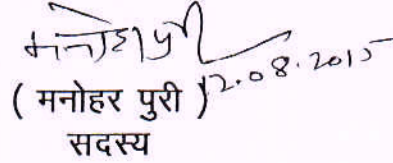 मनोहर पुरी
12.08.2015
( मनोहर पुरी )
सदस्य